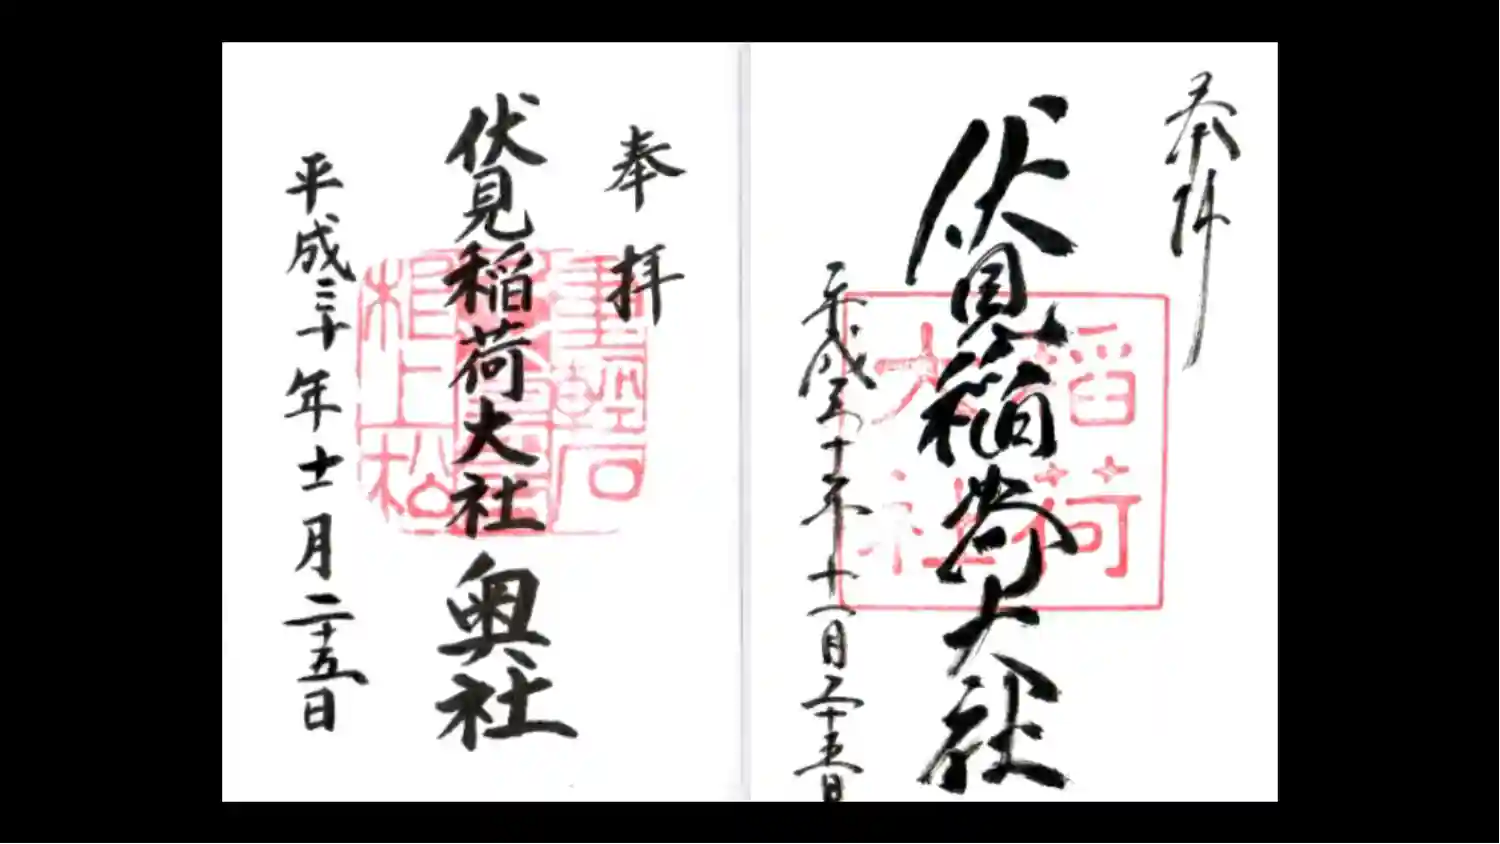 奉拝
伏見稲荷大社
稲荷
大社
平成三十年十一月二十五日
奉拝
伏見稲荷大社 奥社
重軽石
根上松
平成三十年十一月二十五日